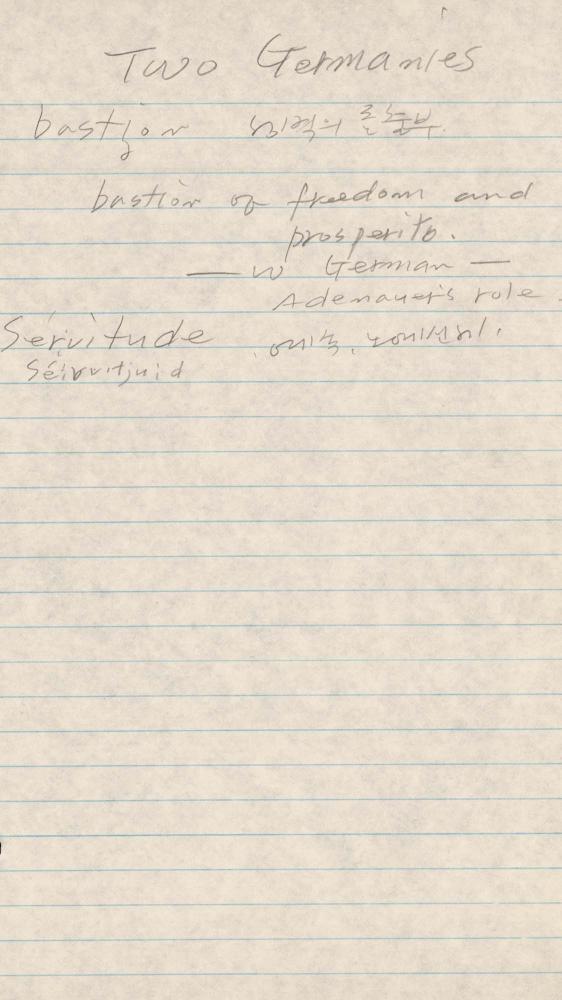 Two Germanies
bastion 성벽의 돌출부.
bastion of freedom and
prosperity.
— W German —
Adenauer's role.
Servitude 예속. 노예신세.